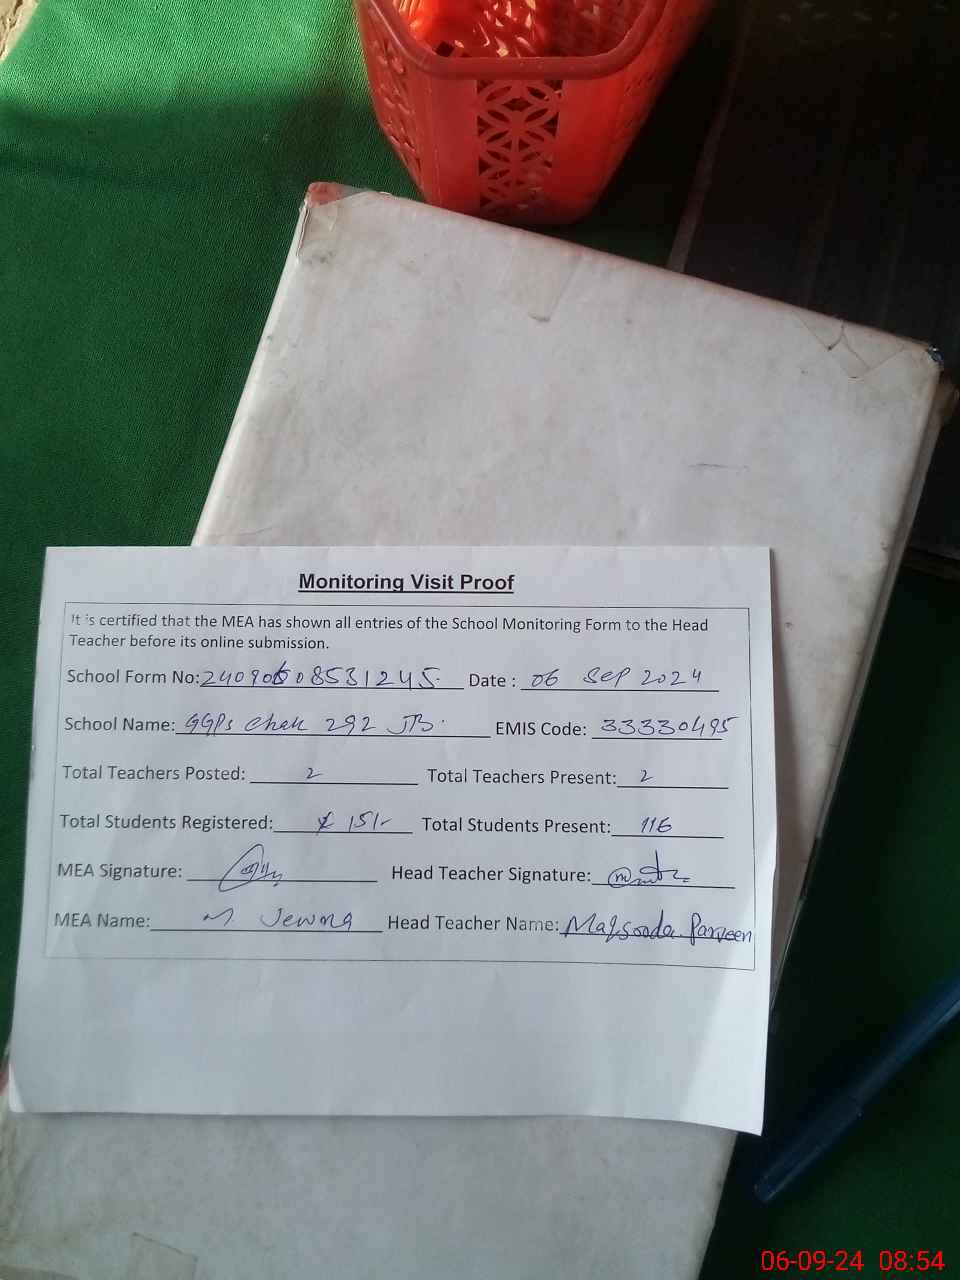 Monitoring Visit Proof
It is certified that the MEA has shown all entries of the School Monitoring Form to the Head
Teacher before its online submission.
School Form No: 24090608531245. Date : 06 Sep 2024
School Name: GGPS Chak 292 JB. EMIS Code: 33330495
Total Teachers Posted: 2 Total Teachers Present: 2
Total Students Registered: 151/- Total Students Present: 116
MEA Signature: Head Teacher Signature:
MEA Name: M. Head Teacher Name: Maqsooda Parveen
06-09-24 08:54